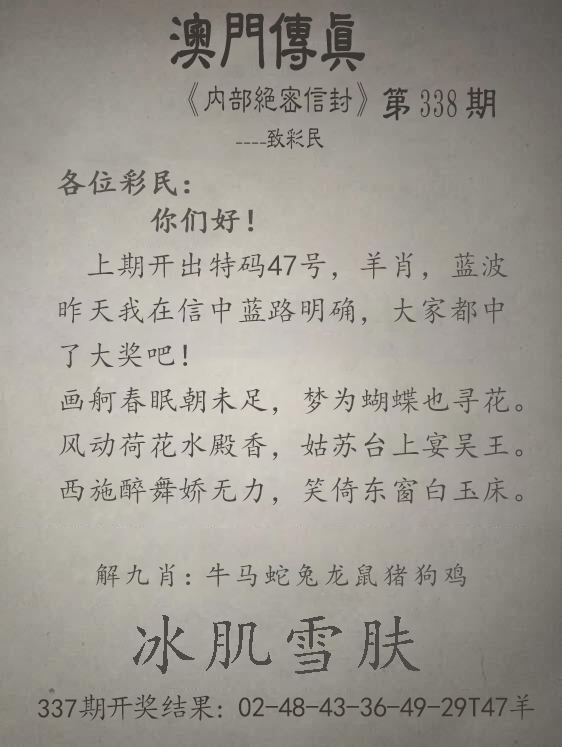 澳門傳眞
《内部絕密信封》第338期
----致彩民
各位彩民：
你们好！
上期开出特码47号，羊肖，蓝波
昨天我在信中蓝路明确，大家都中
了大奖吧！
画舸春眠朝未足，梦为蝴蝶也寻花。
风动荷花水殿香，姑苏台上宴吴王。
西施醉舞娇无力，笑倚东窗白玉床。
解九肖：牛马蛇兔龙鼠猪狗鸡
冰肌雪肤
337期开奖结果：02-48-43-36-49-29T47羊